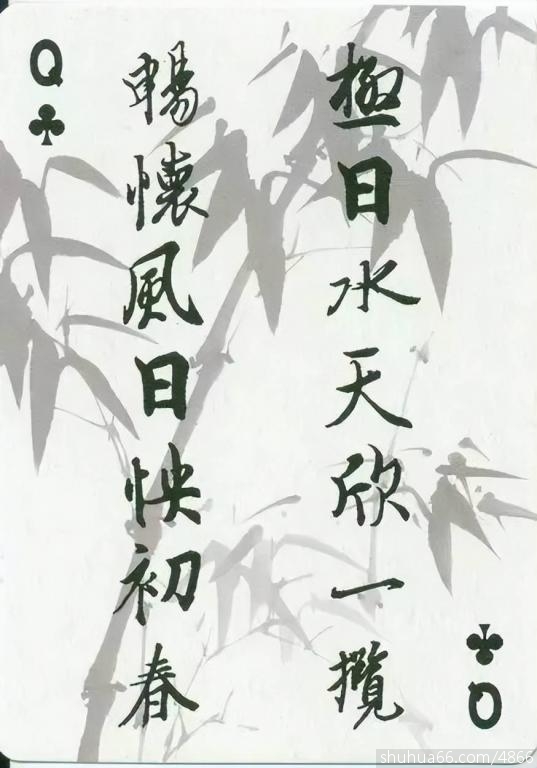 Q♣
極日水天欣一攬
暢懷風日怏初春
Q♣
shuhua66.com/4866